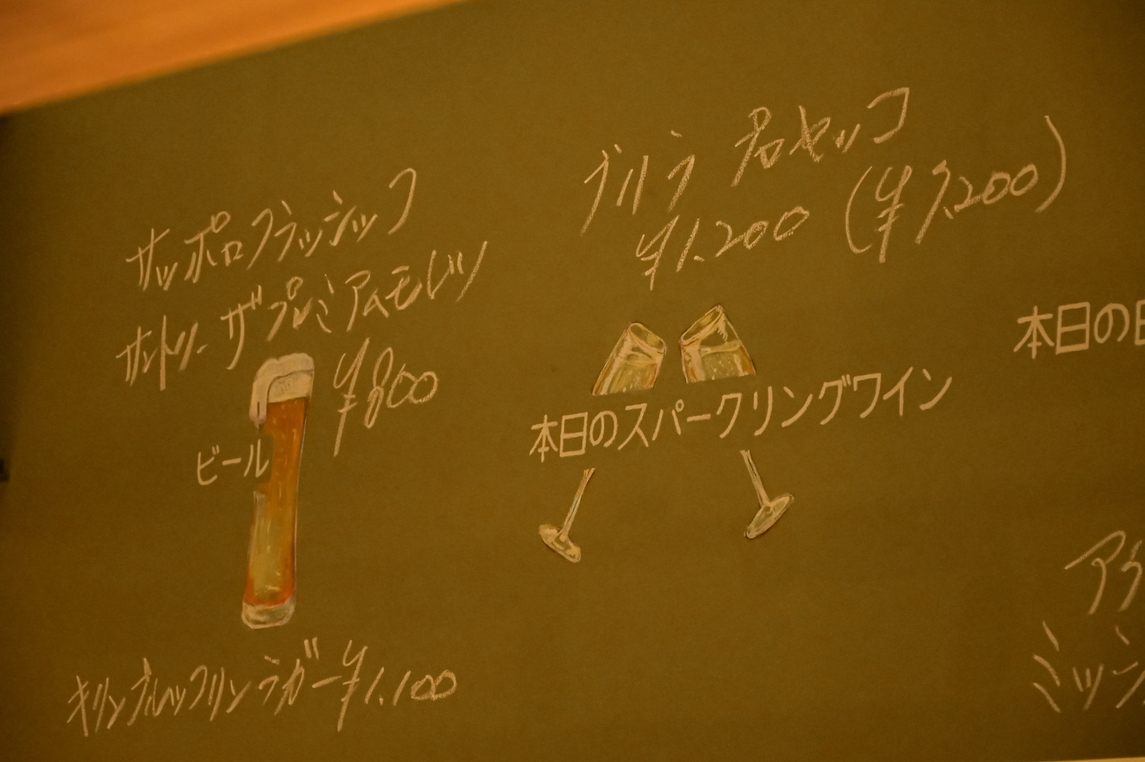 サッポロクラッシック
サントリー ザ プレミアムモルツ
¥800
ビール
キリンブルックリンラガー ¥1,100
ブルラ プロセッコ
¥1,200 (¥7,200)
本日のスパークリングワイン
本日の